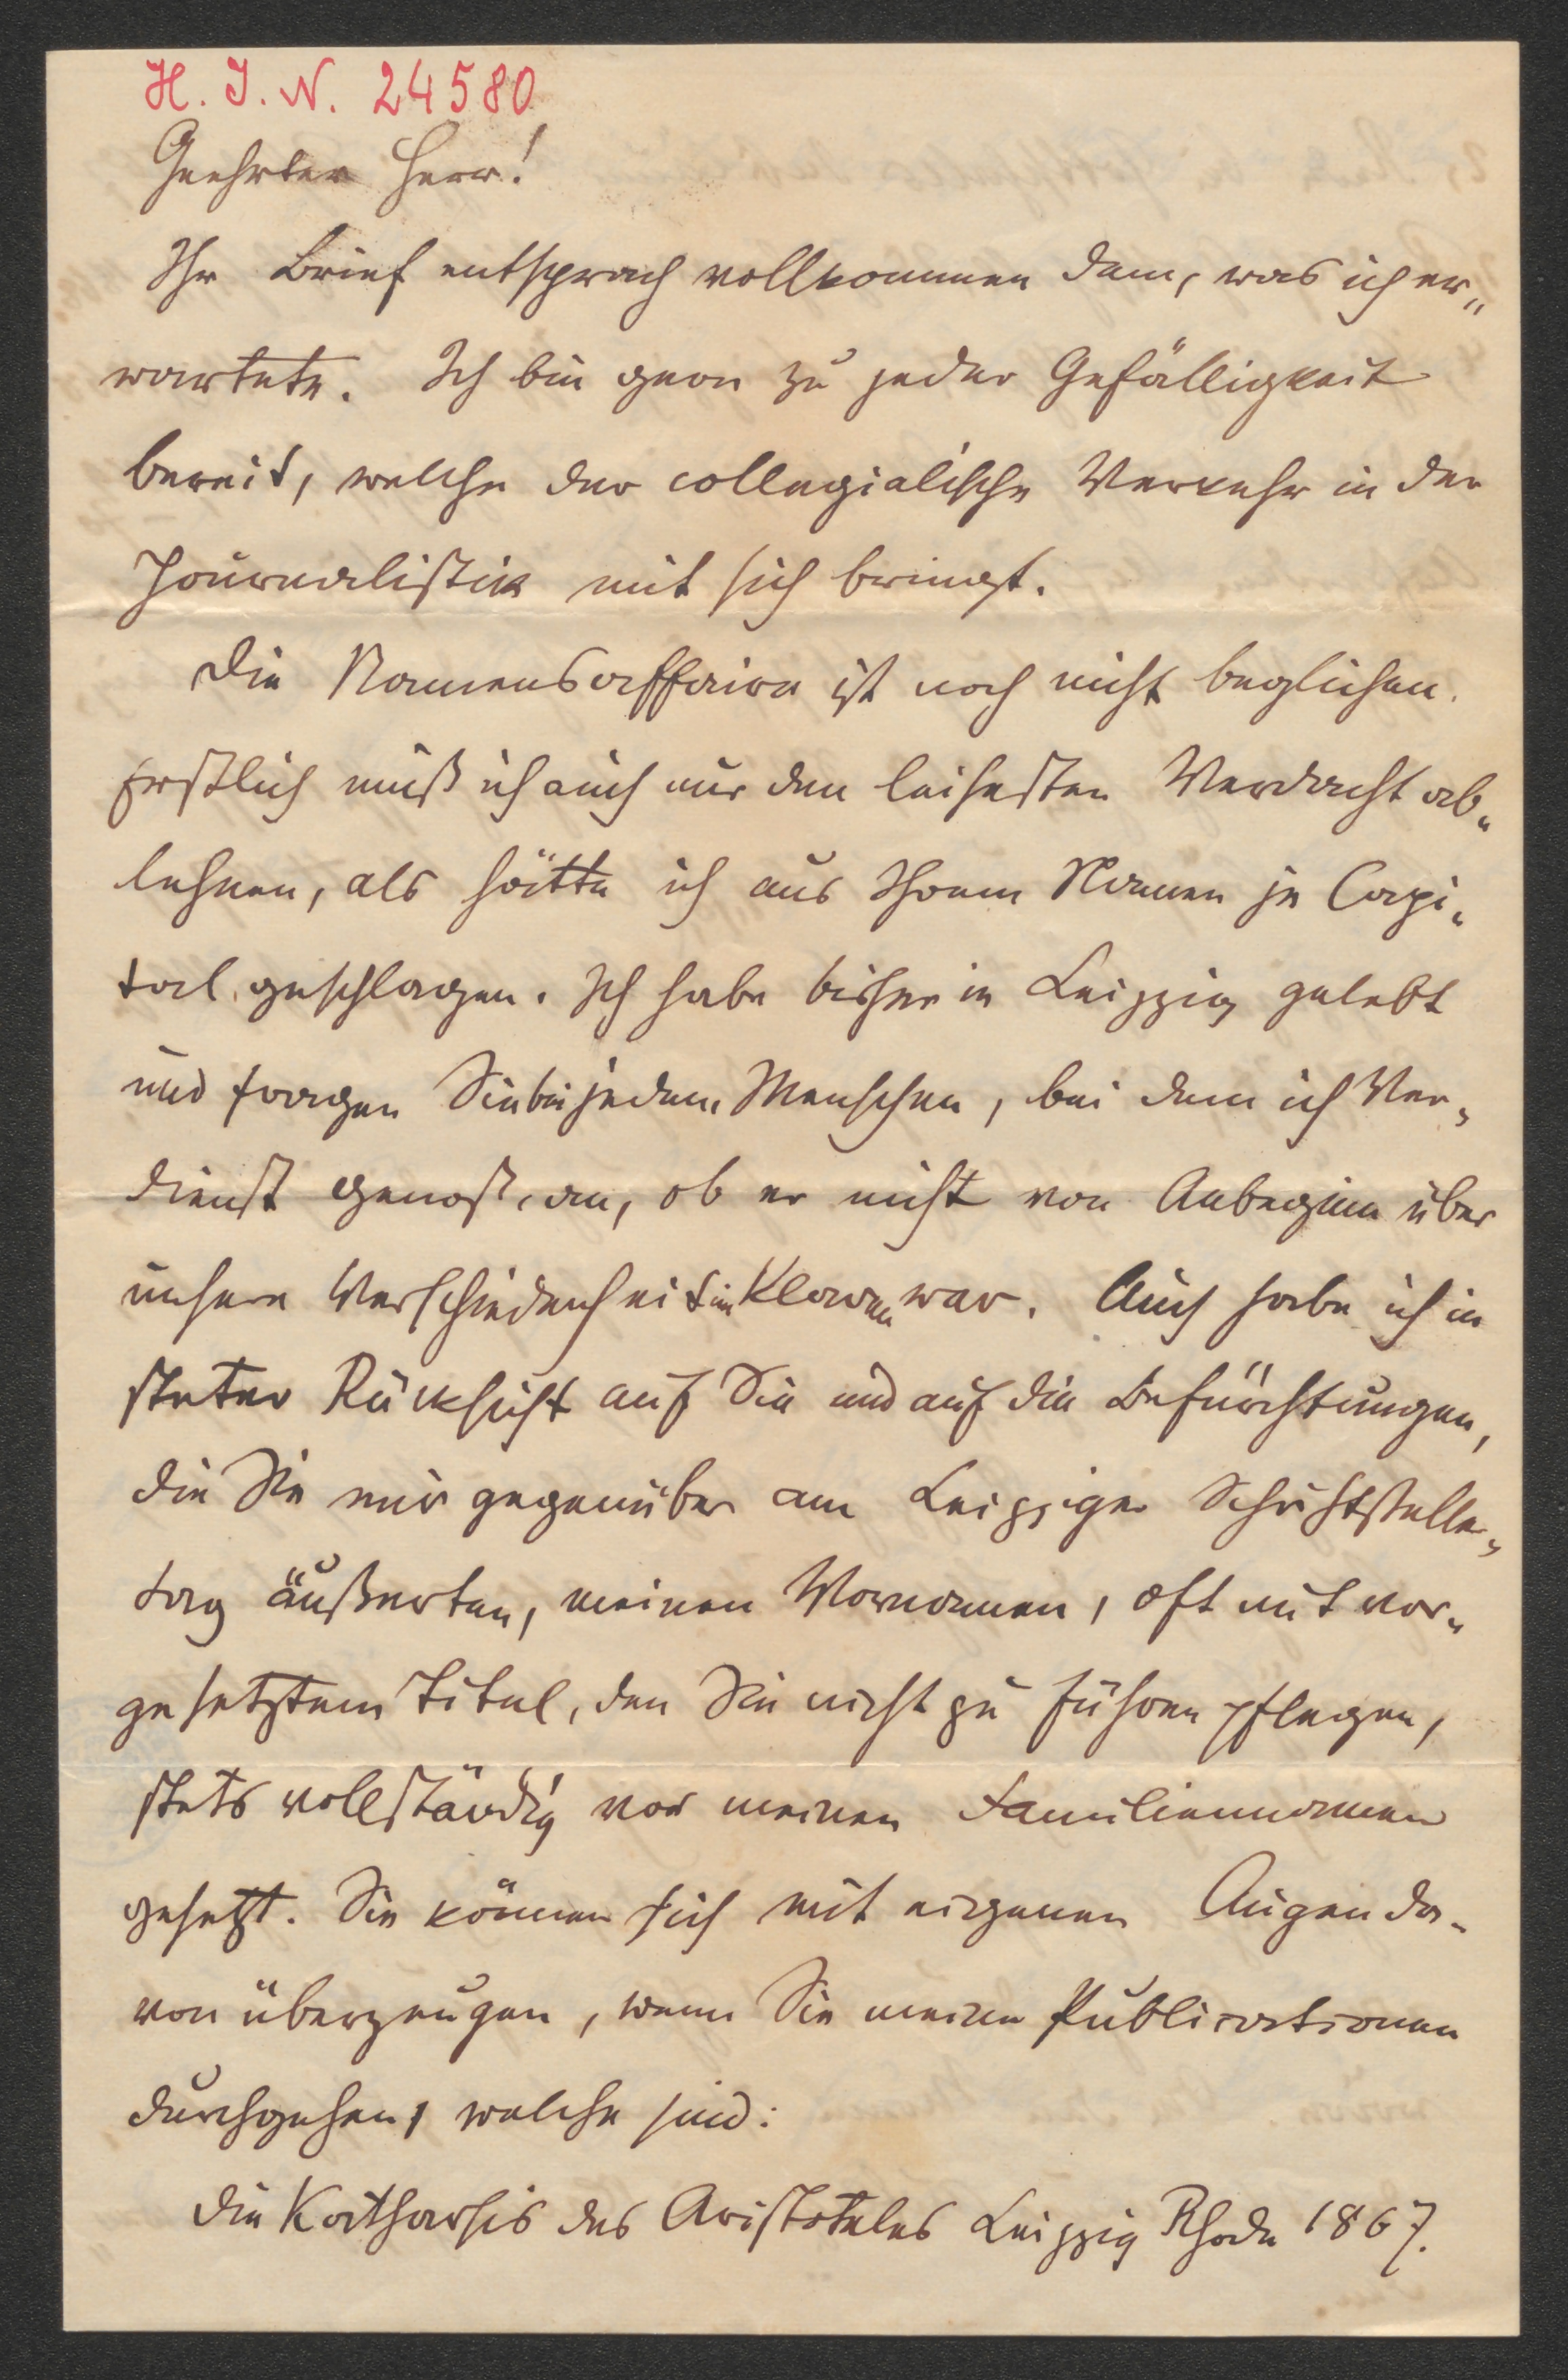 H. I. N. 24580
Geehrter Herr!
Ihr Brief entsprach vollkommen dem, was ich er„
wartete. Ich bin gern zu jeder Gefälligkeit
bereit, welche der collegialische Verkehr in der
Journalistik mit sich bringt.
Die Namensaffaire ist noch nicht beglichen.
Erstlich muß ich auch nur den leisesten Verdacht ab„
lehnen, als hätte ich aus Ihrem Namen je Capi„
tal geschlagen. Ich habe bisher in Leipzig gelebt
und fragen Sie bei jedem Menschen, bei dem ich Ver„
dienst genoß, an, ob er nicht von Anbeginn über
unsere Verschiedenheit im Klaren war. Auch habe ich in
steter Rücksicht auf Sie und auf die Befürchtungen,
die Sie mir gegenüber am Leipziger Schriftsteller„
tag äußerten, meinen Vornamen, oft mit vor„
gesetztem Titel, den Sie nicht zu führen pflegen,
stets vollständig vor meinen Familiennamen
gesetzt. Sie können sich mit eigenen Augen da„
von überzeugen, wenn Sie meine Publicationen
durchgehen, welche sind:
Die Katharsis des Aristoteles Leipzig Rhode 1867.